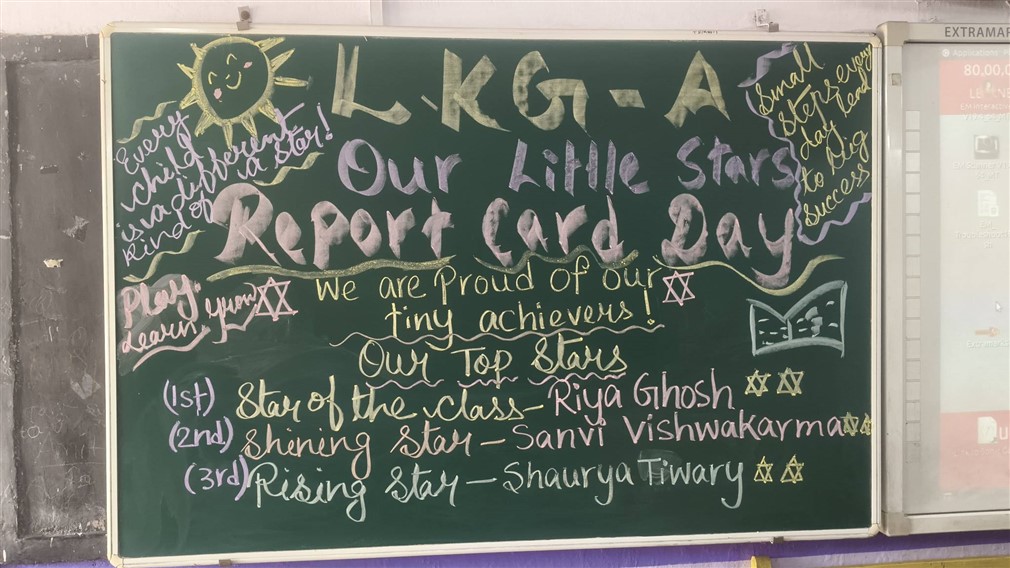 L.KG-A
Every
child
is a different
kind of a star!
Small
steps every
day lead
to big
success
Our Little Stars
Report Card Day
Play.
Learn. Grow
We are Proud of our
tiny achievers!
Our Top Stars
(1st) Star of the class- Riya Ghosh
(2nd) Shining Star - Sanvi Vishwakarma
(3rd) Rising Star - Shaurya Tiwary
EXTRAMAR
80,00,0